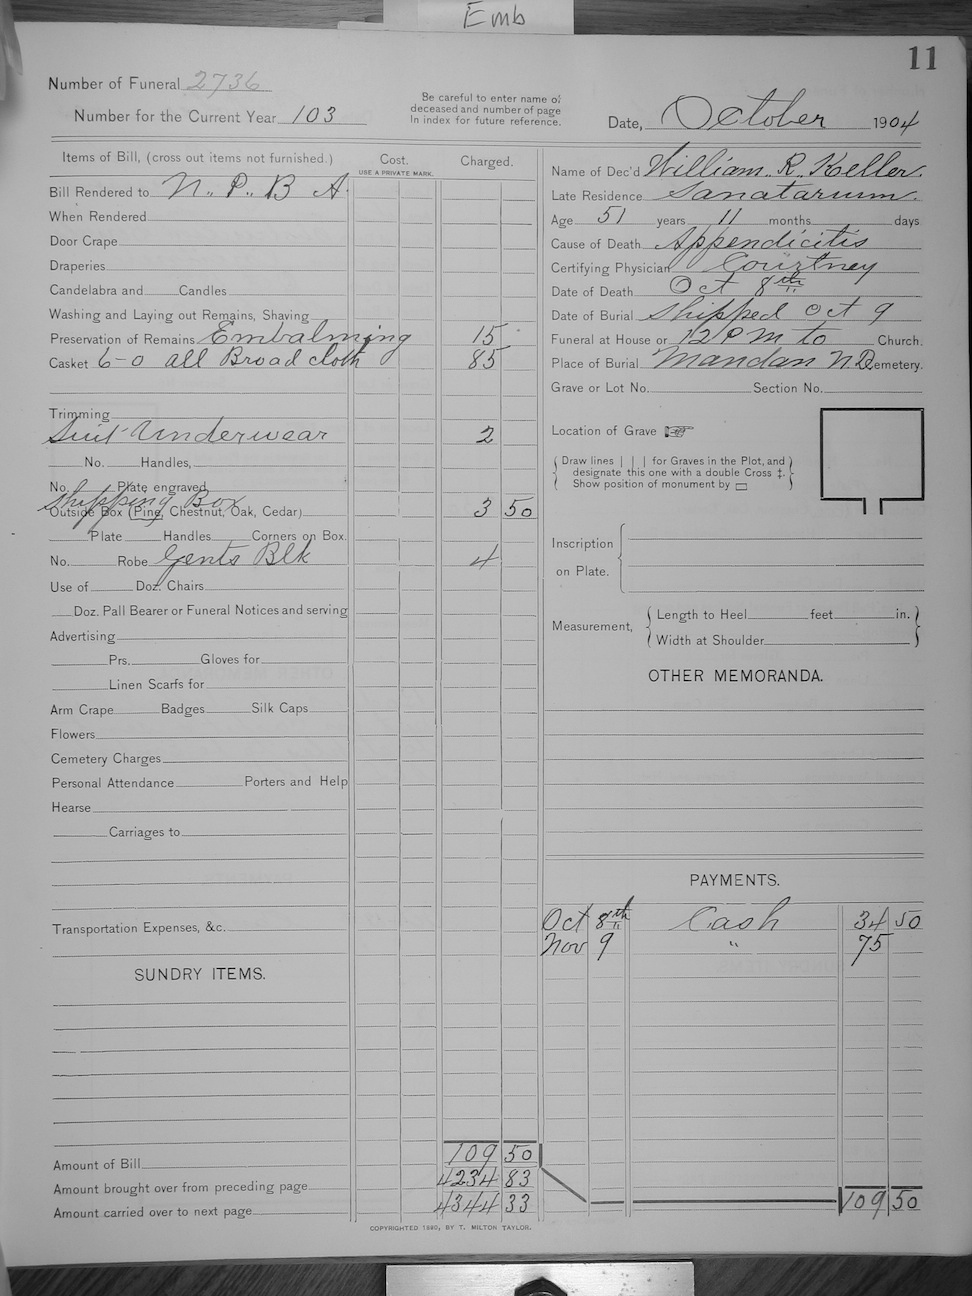 Emb
11
Number of Funeral 2736
Number for the Current Year 103
Be careful to enter name of
deceased and number of page
In index for future reference.
Date, October 1904
Items of Bill, (cross out items not furnished.)
Cost.
USE A PRIVATE MARK.
Charged.
Bill Rendered to N. P. B A.
When Rendered
Door Crape
Draperies
Candelabra and Candles
Washing and Laying out Remains, Shaving
Preservation of Remains Embalming 15
Casket 6-0 all Broad cloth 85
Trimming
Suit Underwear 2
No. Handles,
No. Plate engraved
Shipping Box
Outside Box (Pine, Chestnut, Oak, Cedar) 3 50
Plate Handles Corners on Box.
No. Robe Gents Blk 4
Use of Doz. Chairs
Doz. Pall Bearer or Funeral Notices and serving
Advertising
Prs. Gloves for
Linen Scarfs for
Arm Crape Badges Silk Caps
Flowers
Cemetery Charges
Personal Attendance Porters and Help
Hearse
Carriages to
Transportation Expenses, &c.
SUNDRY ITEMS.
Amount of Bill 109 50
Amount brought over from preceding page 4234 83
Amount carried over to next page 4344 33
COPYRIGHTED 1890, BY T. MILTON TAYLOR.
Name of Dec'd William. R. Keller.
Late Residence Sanatarium.
Age 51 years 11 months days
Cause of Death Appendicitis
Certifying Physician Courtney
Date of Death Oct 8th
Date of Burial Shipped Oct 9
Funeral at House or 12 P M to Church.
Place of Burial Mandan N.D. Cemetery.
Grave or Lot No. Section No.
Location of Grave
Draw lines | | | for Graves in the Plot, and
designate this one with a double Cross ‡.
Show position of monument by ▭
Inscription
on Plate.
Measurement,
Length to Heel feet in.
Width at Shoulder
OTHER MEMORANDA.
PAYMENTS.
Oct 8th Cash 34 50
Nov 9 " 75
109 50